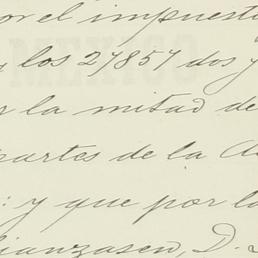 por el impuesto
y los 27857 dos y
MEXICO
por la mitad de
partes de la
: y que por la
D.